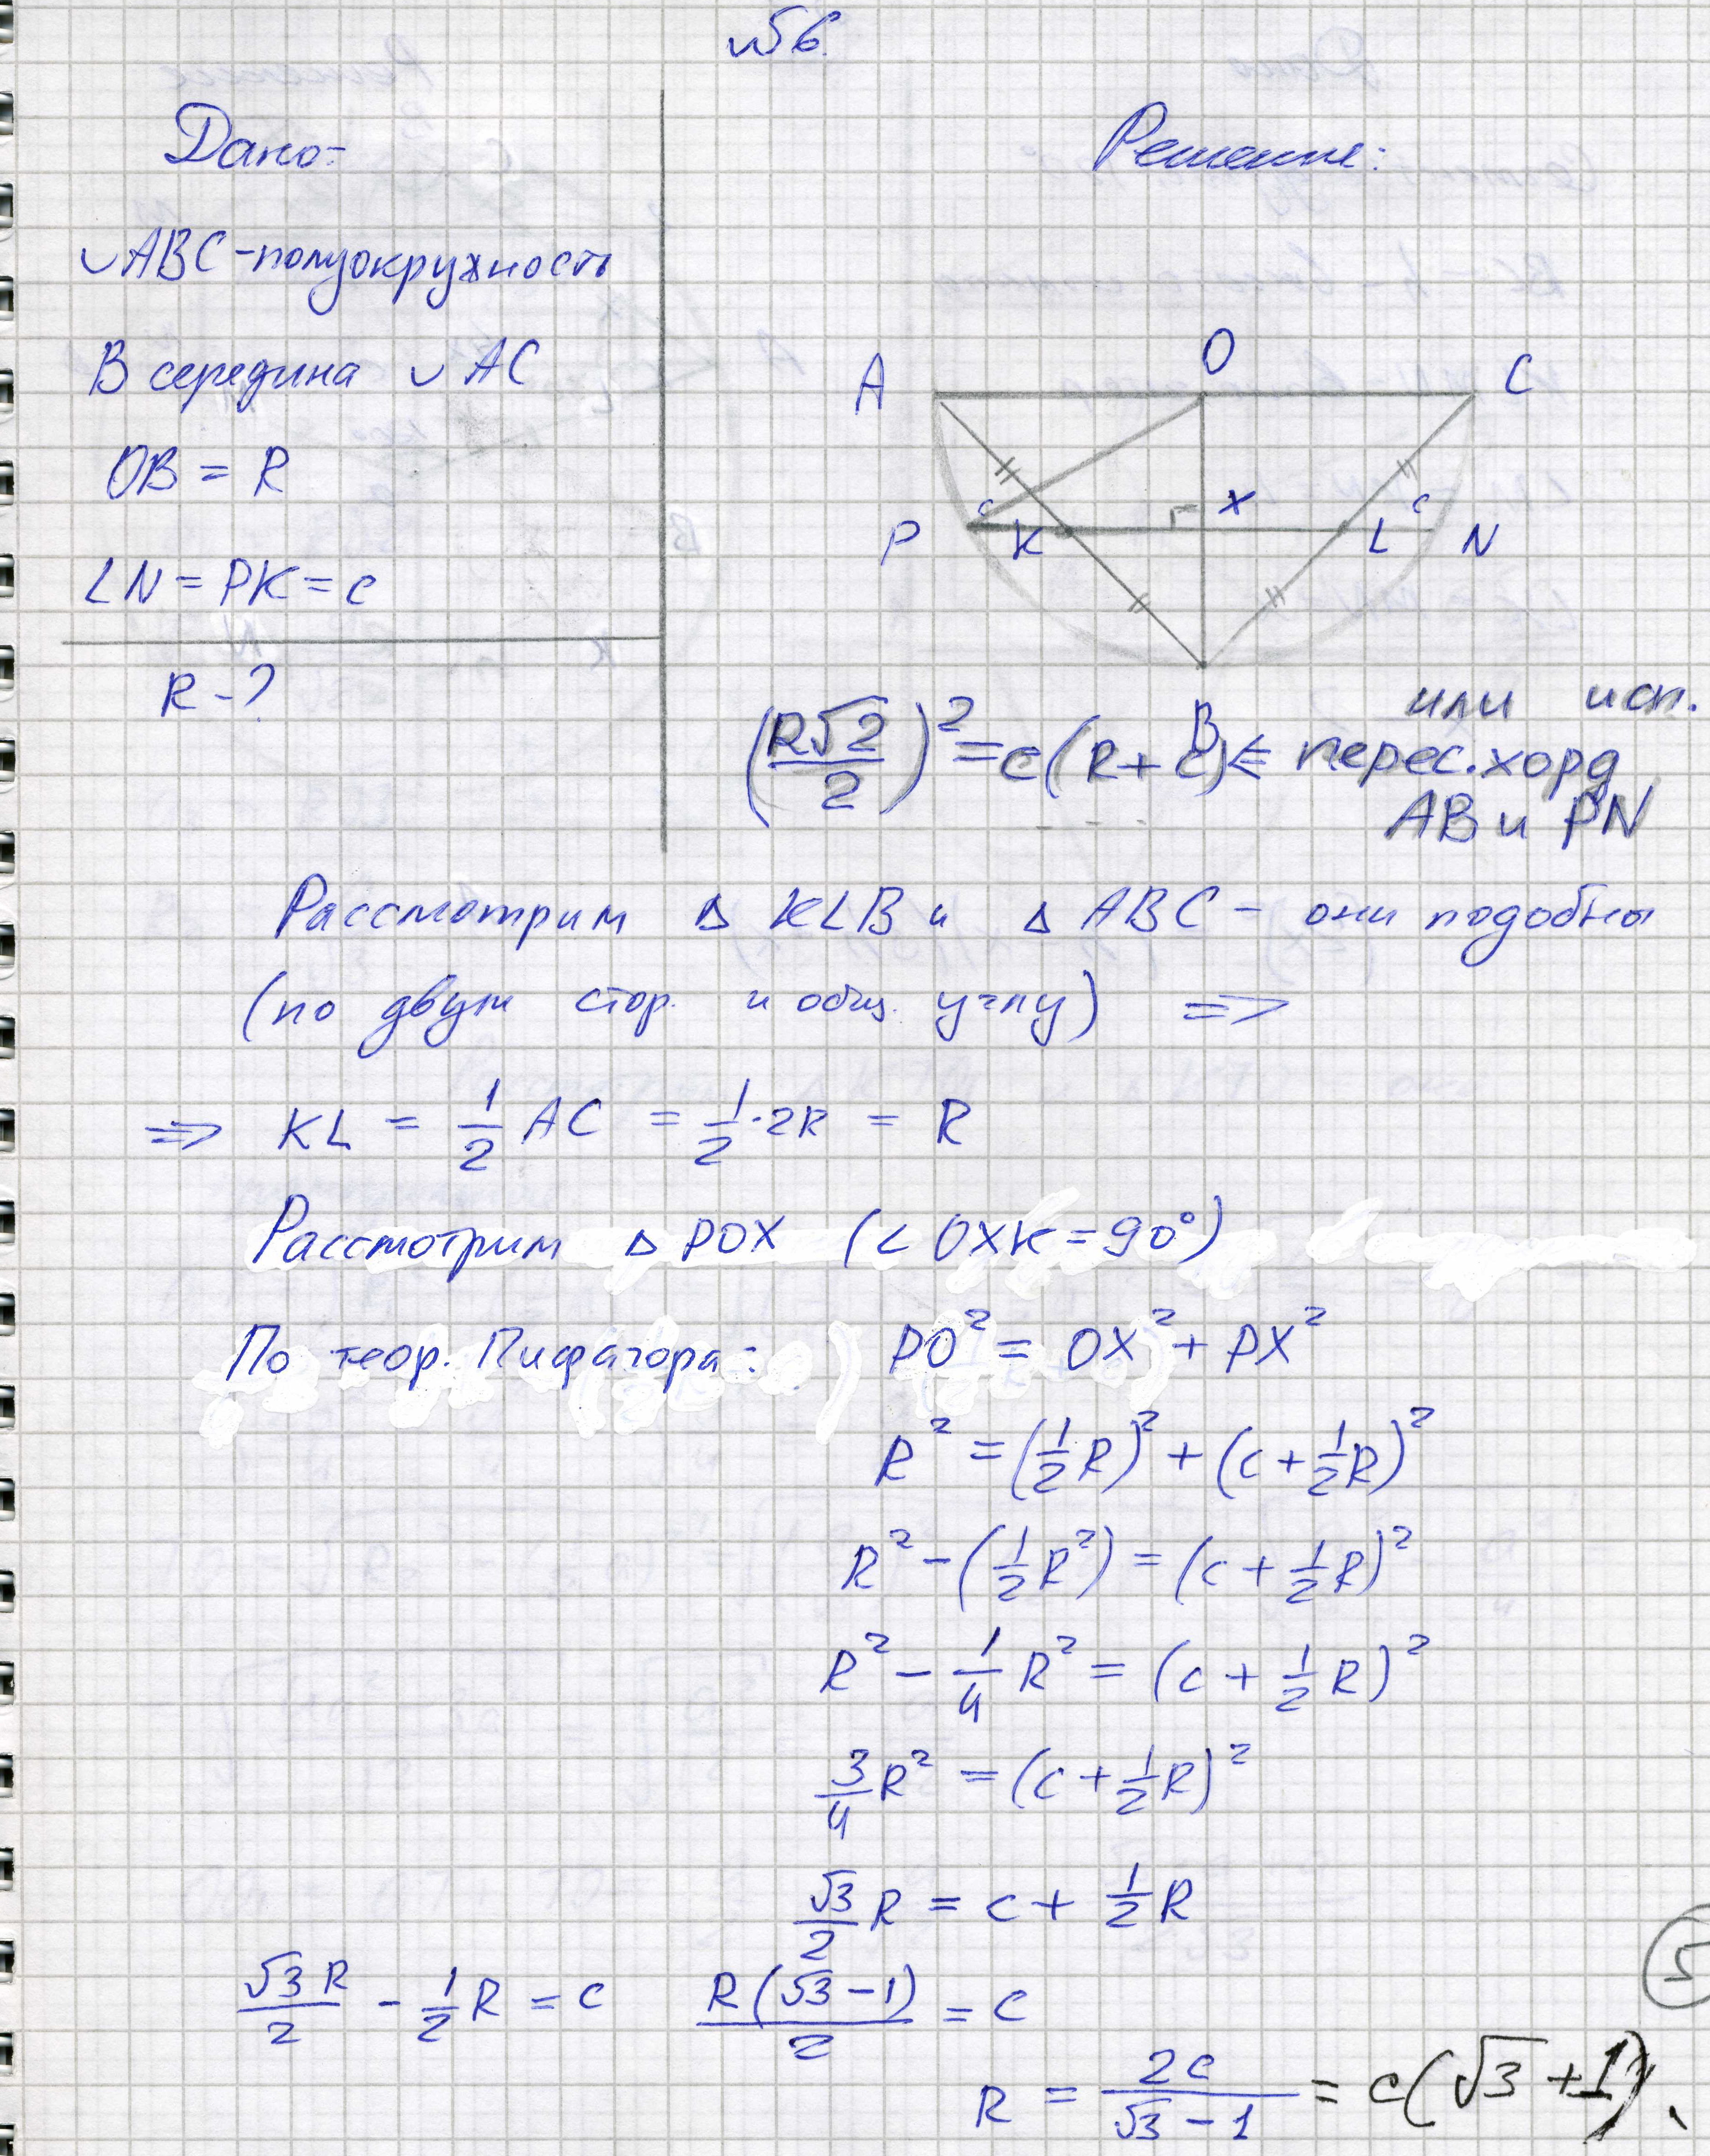 №6.
Дано:
◡ABC-полуокружность
B середина ◡ AC
OB = R
LN = PK = c
R - ?
Решение:
A O C
P c K X L c N
B
(R√2/2)² = c(R + c) ⇐ или исп. перес. хорд AB и PN
Рассмотрим Δ KLB и Δ ABC - они подобны
(по двум стор. и общ. углу) =>
=> KL = 1/2 AC = 1/2 · 2R = R
Рассмотрим Δ POX (∠ OXK = 90°)
По теор. Пифагора: PO² = OX² + PX²
R² = (1/2 R)² + (c + 1/2 R)²
R² - (1/2 R²) = (c + 1/2 R)²
R² - 1/4 R² = (c + 1/2 R)²
3/4 R² = (c + 1/2 R)²
√3/2 R = c + 1/2 R
√3 R/2 - 1/2 R = c R(√3 - 1)/2 = c
R = 2c/(√3 - 1) = c(√3 + 1).
5